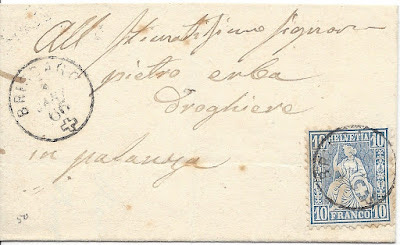 All Stimatissimo Signore
pietro erba
Droghiere
in palanza
BRISSAGO
HELVETIA
10 10
10 FRANCO 10